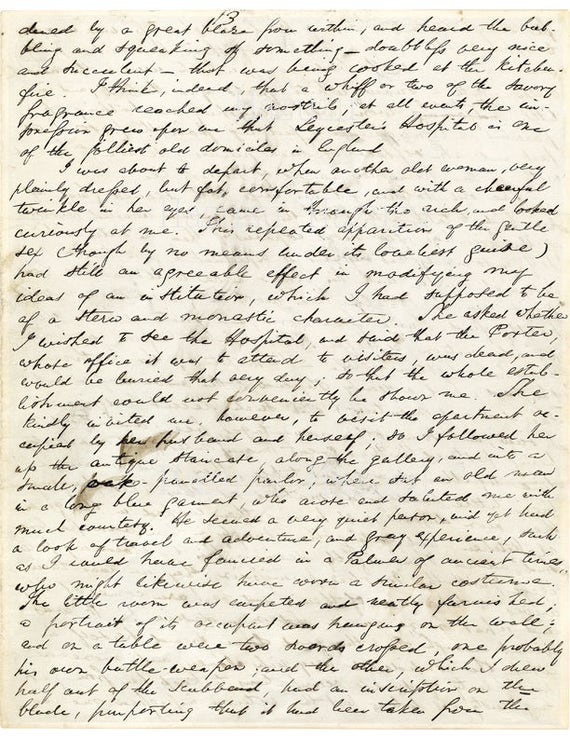 13
dened by a great blaze from within, and heard the bub-
bling and squeaking of something – doubtless very nice
and succulent – that was being cooked at the kitchen-
fire. I think, indeed, that a whiff or two of the savory
fragrance reached my nostrils; at all events, the im-
pression grew upon me that Leycester's Hospital is one
of the jolliest old domiciles in England
I was about to depart, when another old woman, very
plainly dressed, but fat, comfortable, and with a cheerful
twinkle in her eyes, came in through the arch, and looked
curiously at me. This repeated apparition of the gentle
sex (though by no means under its loveliest guise)
had still an agreeable effect in modifying my
ideas of an institution, which I had supposed to be
of a stern and monastic character. She asked whether
I wished to see the Hospital, and said that the Porter,
whose office it was to attend to visitors, was dead, and
would be buried that very day; so that the whole estab-
lishment could not conveniently be shown me. She
kindly invited me, however, to visit the apartment oc-
cupied by her husband and herself; so I followed her
up the antique staircase, along the gallery, and into a
small, oak-panelled parlor, where sat an old man
in a long blue garment, who arose and saluted me with
much courtesy. He seemed a very quiet person, and yet had
a look of travel and adventure, and gray experience, such
as I could have fancied in a Palmer of ancient times,
who might likewise have worn a similar costume.
The little room was carpeted and neatly furnished;
a portrait of its occupant was hanging on the wall;
and on a table were two swords crossed, one probably
his own battle-weapon, and the other, which I drew
half out of the scabbard, had an inscription on the
blade, purporting that it had been taken from the